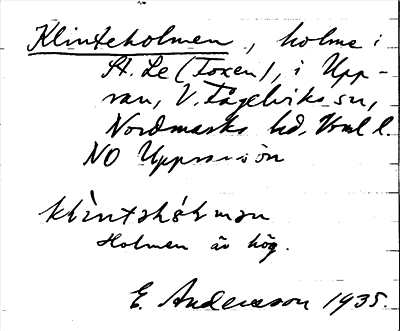 Klinteholmen, holme i
St. Le (Foxen), i Upp-
ran, V. Fågelviks sn,
Nordmarks hd, Vrml l.
NO Uppranön
klìntahólman
Holmen är hög.
E. Andersson 1935.